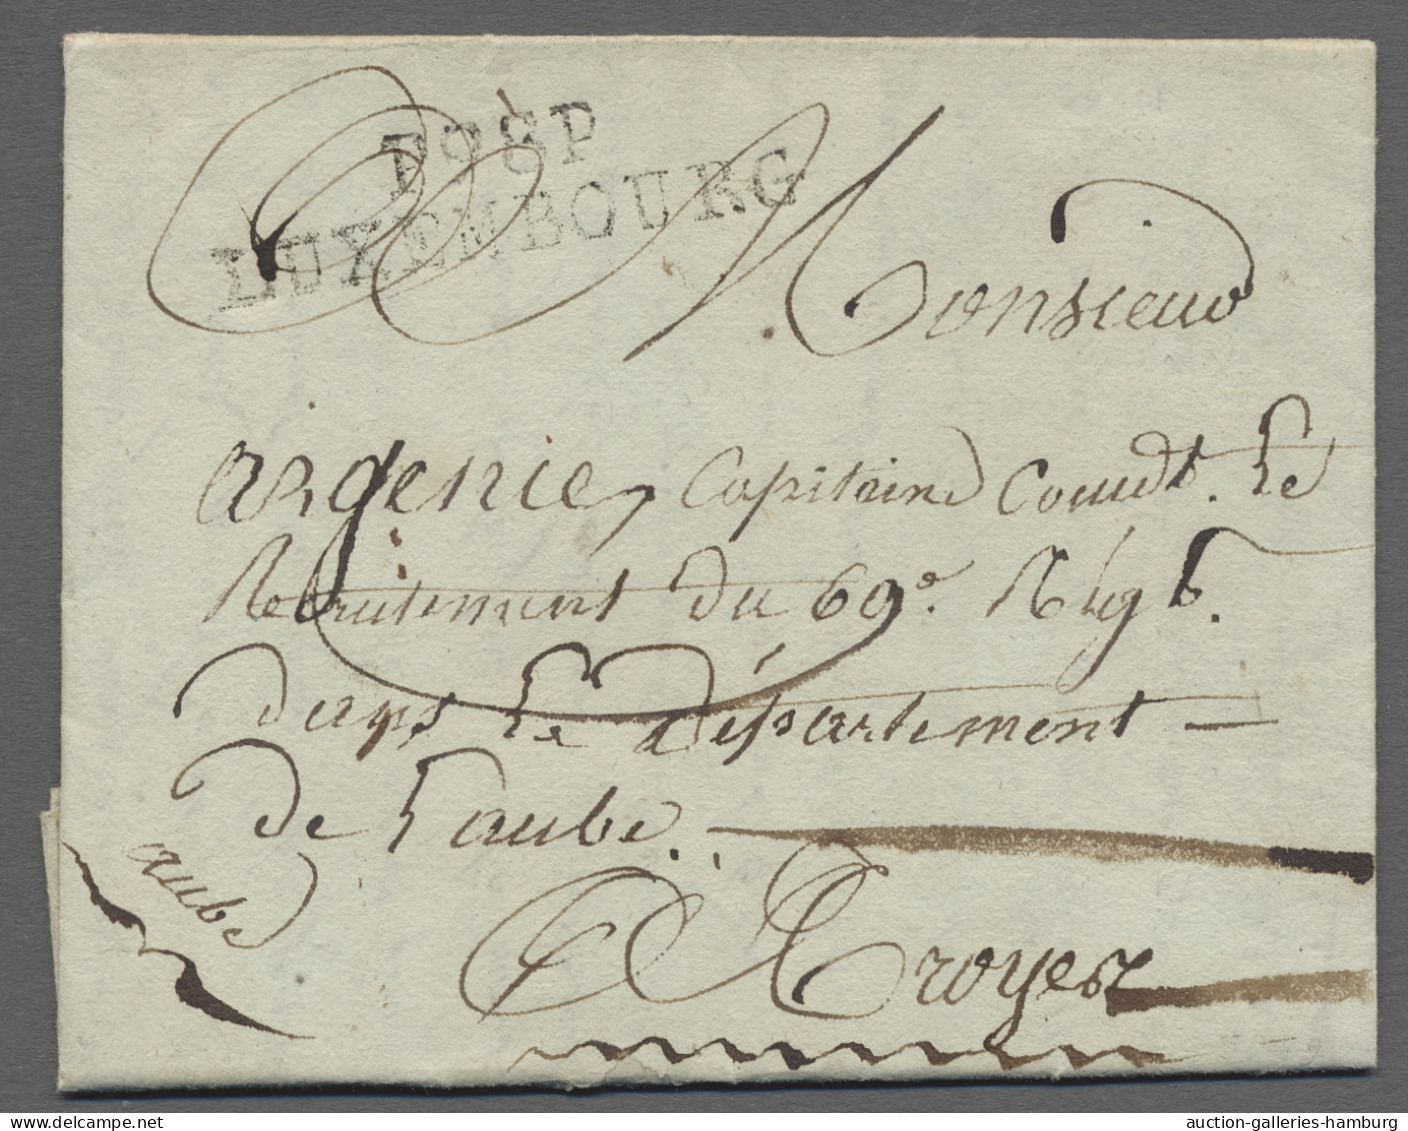 P98P
LUXEMBOURG
A Monsieur
argenie, Capitaine Comdt. Le
Recrutement du 69e. Régt.
dans Le département
de Laube.
aube
A Troyes
auction-galleries-hamburg